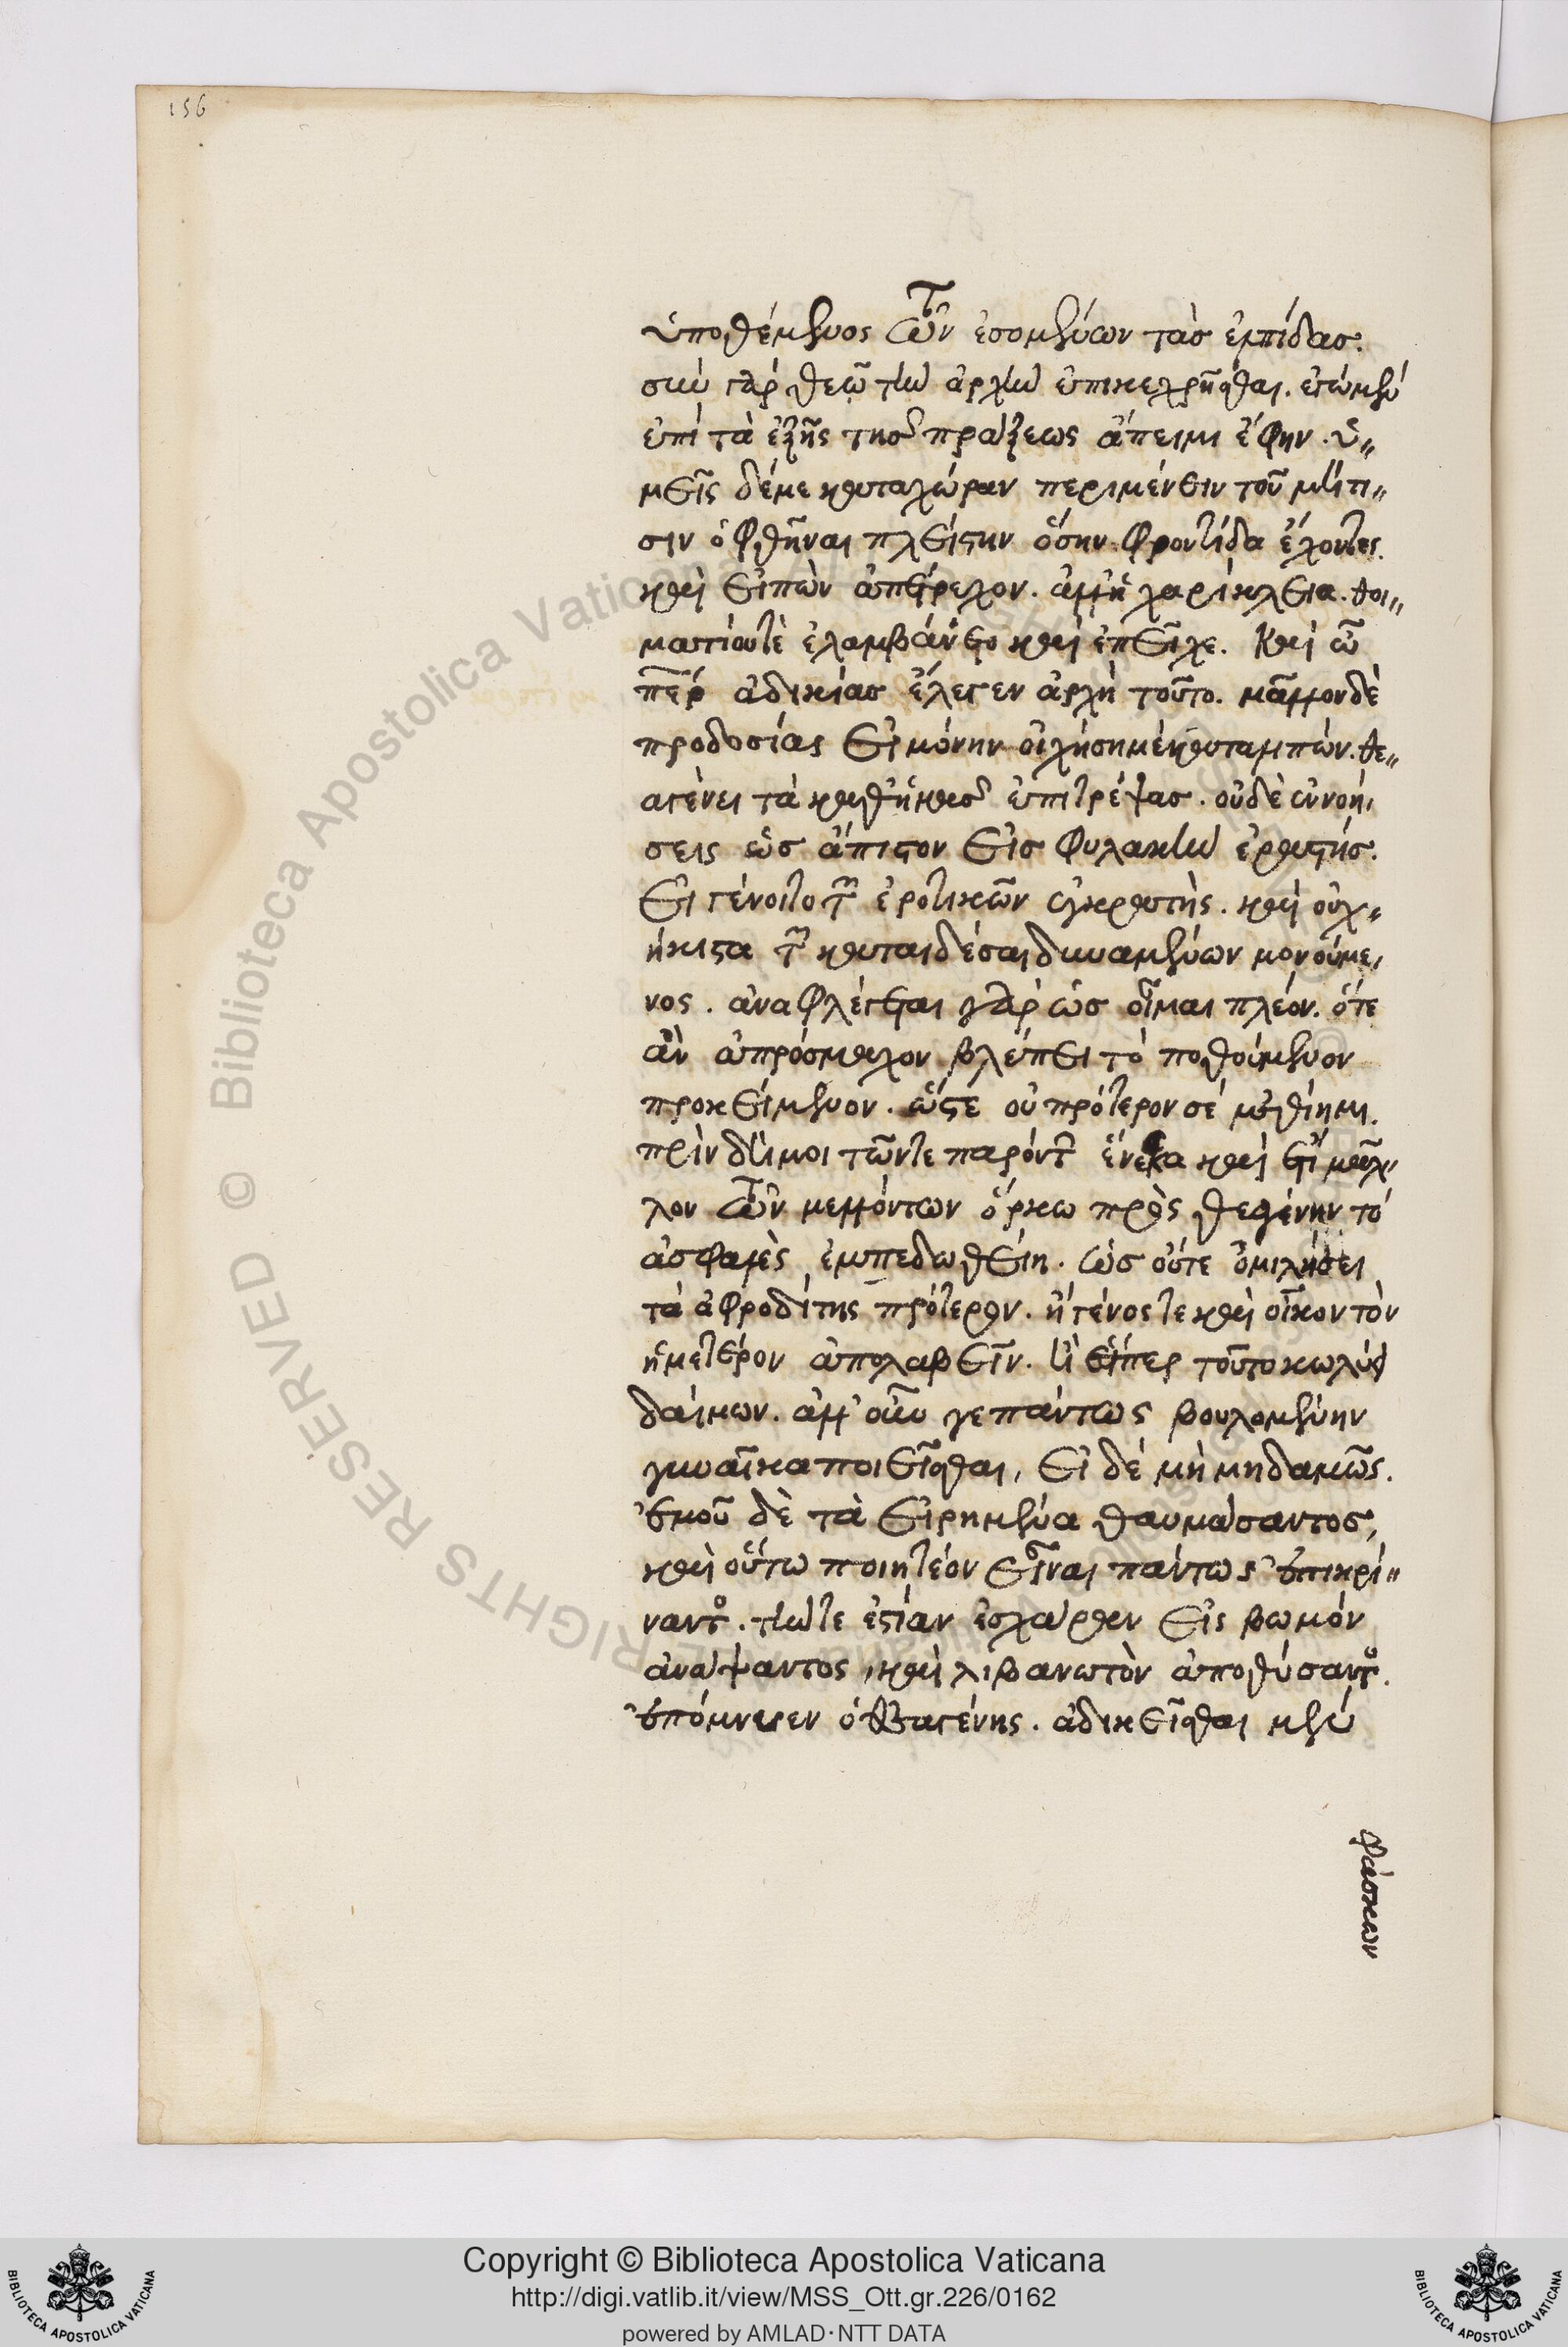 156
ὑποθέμενος τῶν ἐσομένων τὰς ἐλπίδας.
σὺν γὰρ θεῷ τὴν ἀρχὴν ἐπικεχρῆσθαι. ἐγὼ μὲν
ἐπὶ τὰ ἑξῆς τῆς πράξεως ἄπειμι ἔφην. ὑ〃
μεῖς δέ με κατα χώραν περιμένειν τοῦ μή τι〃
σιν ὀφθῆναι πλείστην ὅσην φροντίδα ἔχοντες.
καὶ εἰπὼν ἀπέτρεχον. ἀλλ' ἡ χαρίκλεια. θοι〃
ματίου τὲ ἐλαμβάνετο καὶ ἐπεῖχε. Καὶ ὦ
πατερ ἀδικίας ἔλεγεν ἀρχὴ τοῦτο. μᾶλλον δὲ
προδοσίας εἰ μόνην οἰχήση μὲ καταλιπών. θε〃
αγένει τὰ καθ' ἡμᾶς ἐπιτρέψας. οὐδὲ ἐννοή
σεις ὡς ἄπιστον εἰς φυλακὴν ἐραστής.
εἰ γένοιτο τῶν ἐροτικῶν ἐγκρατὴς. καὶ οὐχ〃
ἥκιστα τῶν καταιδέσαι δυναμένων μονούμε
νος. ἀναφλέγεται γὰρ ὡς οἶμαι πλέον. ὅτε
ἂν ἀπρόσμαχον βλέπει τὸ ποθούμενον
προκείμενον. ὥστέ οὐ πρότερον σέ μεθίημι.
πρὶν δή μοι τῶν τε παρόντων ἕνεκα καὶ ἔτι μᾶλ
λον τῶν μελλόντων ὅρκω πρὸς θεαγένην τὸ
ἀσφαλὲς ἐμπεδωθείη. ὡς οὔτε ὁμιλήσει
τὰ ἀφροδίτης πρότερον. ἢ γένος τε καὶ οἶκον τὸν
ἡμετερον ἀπολαβεῖν. ἢ εἴπερ τοῦτο κωλύει
δαίμων. ἀλλ' οὖν γε πάντως βουλομένην
γυναῖκα ποιεῖσθαι, εἰ δέ μὴ μηδαμῶς.
ἐμοῦ δὲ τὰ εἰρημένα θαυμάσαντος,
καὶ οὕτω ποιητέον εἶναι πάντως ἐπικρί〃
ναντος. τήν τε ἑστίαν ἐσχάραν εἰς βωμόν
ἀνάψαντος, καὶ λιβανωτὸν ἀποθύσαντος.
ἐπόμνυεν ὁ θεαγένης. ἀδικεῖσθαι μὲν
φάσκων
Copyright © Biblioteca Apostolica Vaticana
http://digi.vatlib.it/view/MSS_Ott.gr.226/0162
powered by AMLAD·NTT DATA